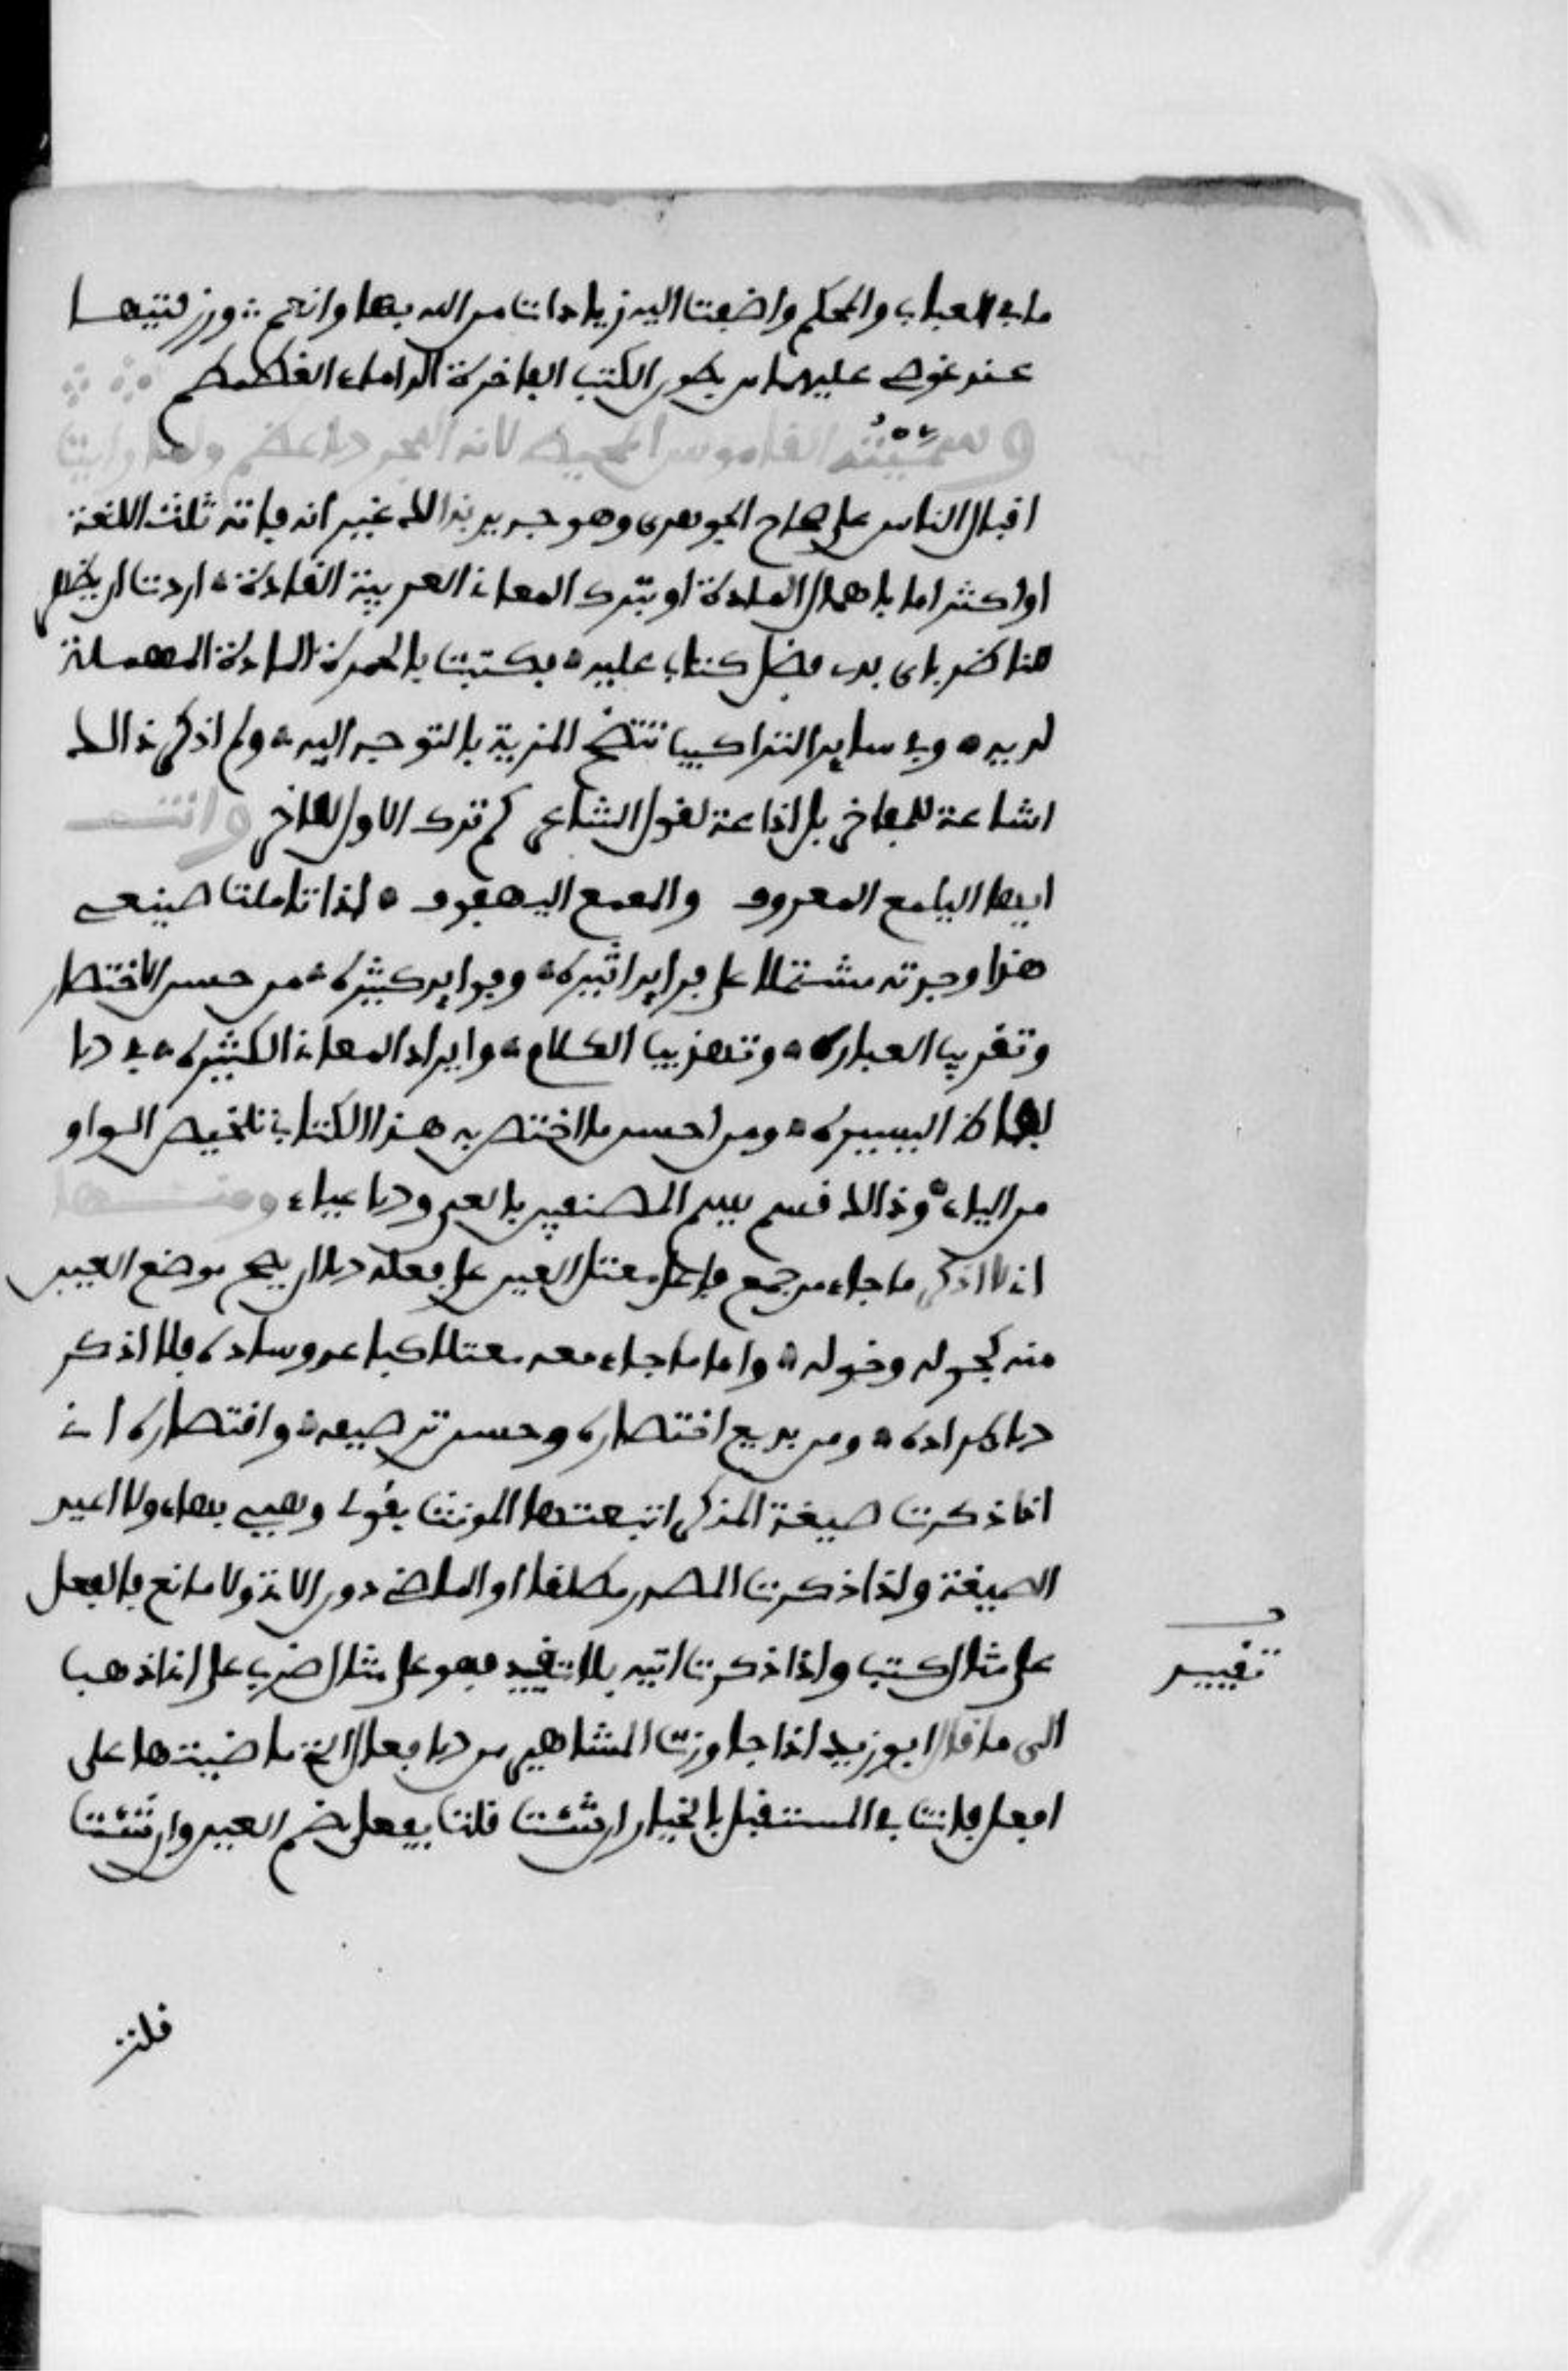 ما في العباب والمحكم واضفت اليه زيادات من الله بها وانعم ورزقنيها
عند غوصي عليها من بطون الكتب الفاخرة الداماء الغطمطم
وسميته القاموس المحيط لانه البحر الاعظم ولما رايت
اقبال الناس على صحاح الجوهري وهو جدير بذالك غير انه فاته ثلث اللغة
او اكثر اما باهمال المادة او بترك المعاني الغريبة النادة اردت ان يظهر
للناظر بادي بدء فضل كتابي عليه فكتبت بالحمرة المادة المهملة
لديه وفي ساير التراكيب تتضح المزية بالتوجه اليه ولم اذكر ذالك
اشاعة للمفاخر بل اذاعة لقول الشاعر كم ترك الاول للاخر وانت
ايها اليلمع العروف والمعمع اليهفوف اذا تاملت صنيعي
هذا وجدته مشتملا على فرايد اثيرة وفوايد كثيرة من حسن الاختصار
وتقريب العبارة وتهذيب الكلام وايراد المعاني الكثيرة في الا
لفاظ اليسيرة ومن احسن ما اختص به هذا الكتاب تلخيص الواو
من الياء وذالك قسم يسم المصنفين بالعي والاعياء ومنها
اني لا اذكر ما جاء من جمع فاعل معتل العين على فعلة الا ان يصح موضع العين
منه كجولة وخولة واما ما جاء معه معتلا كباعة وسادة فلا اذكره
لاطراده ومن بديع اختصاره وحسن ترصيعه واقتصاره اني
اذا ذكرت صيغة المذكر اتبعتها المونث بقولي وهي بهاء ولا اعيد
الصيغة واذا ذكرت المصدر مطلقا او الماضي دون الاتي ولا مانع فالفعل
على مثال كتب واذا ذكرت اتيه بلا تقييد فهو على مثال ضرب على اني اذهب
الى ما قال ابو زيد اذا جاوزت المشاهير من الافعال التي ماضيها على
افعل فانت في المستقبل بالخيار ان شئت قلت يفعل بضم العين وان شئت
قلت
تقييد